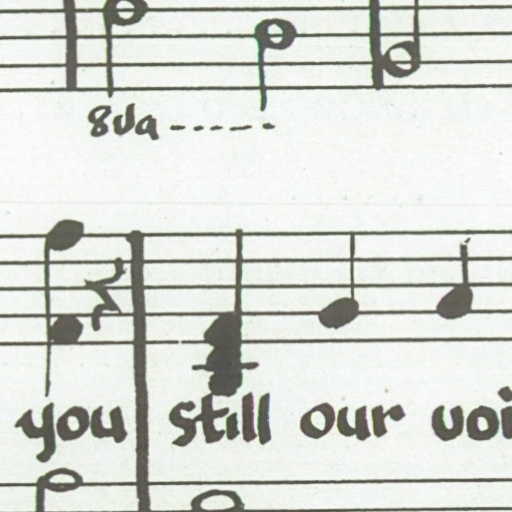 8va
you still our